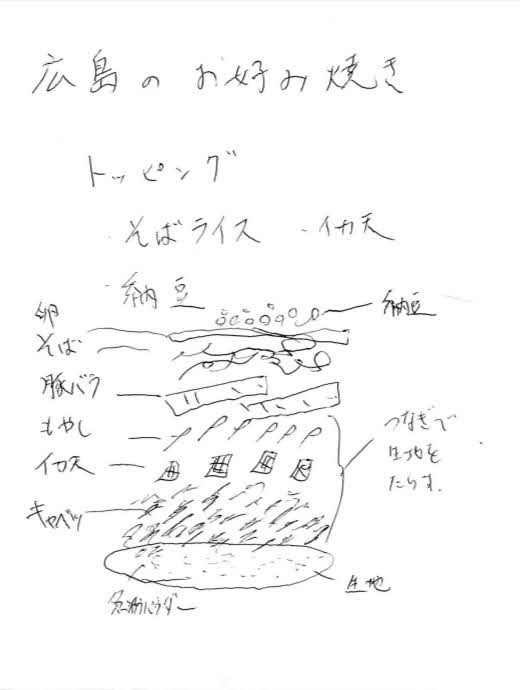 広島のお好み焼き
トッピング
・そばライス ・イカ天
・納豆
納豆
卵
そば
豚バラ
もやし
イカ天
キャベツ
つなぎで
生地を
たらす.
生地